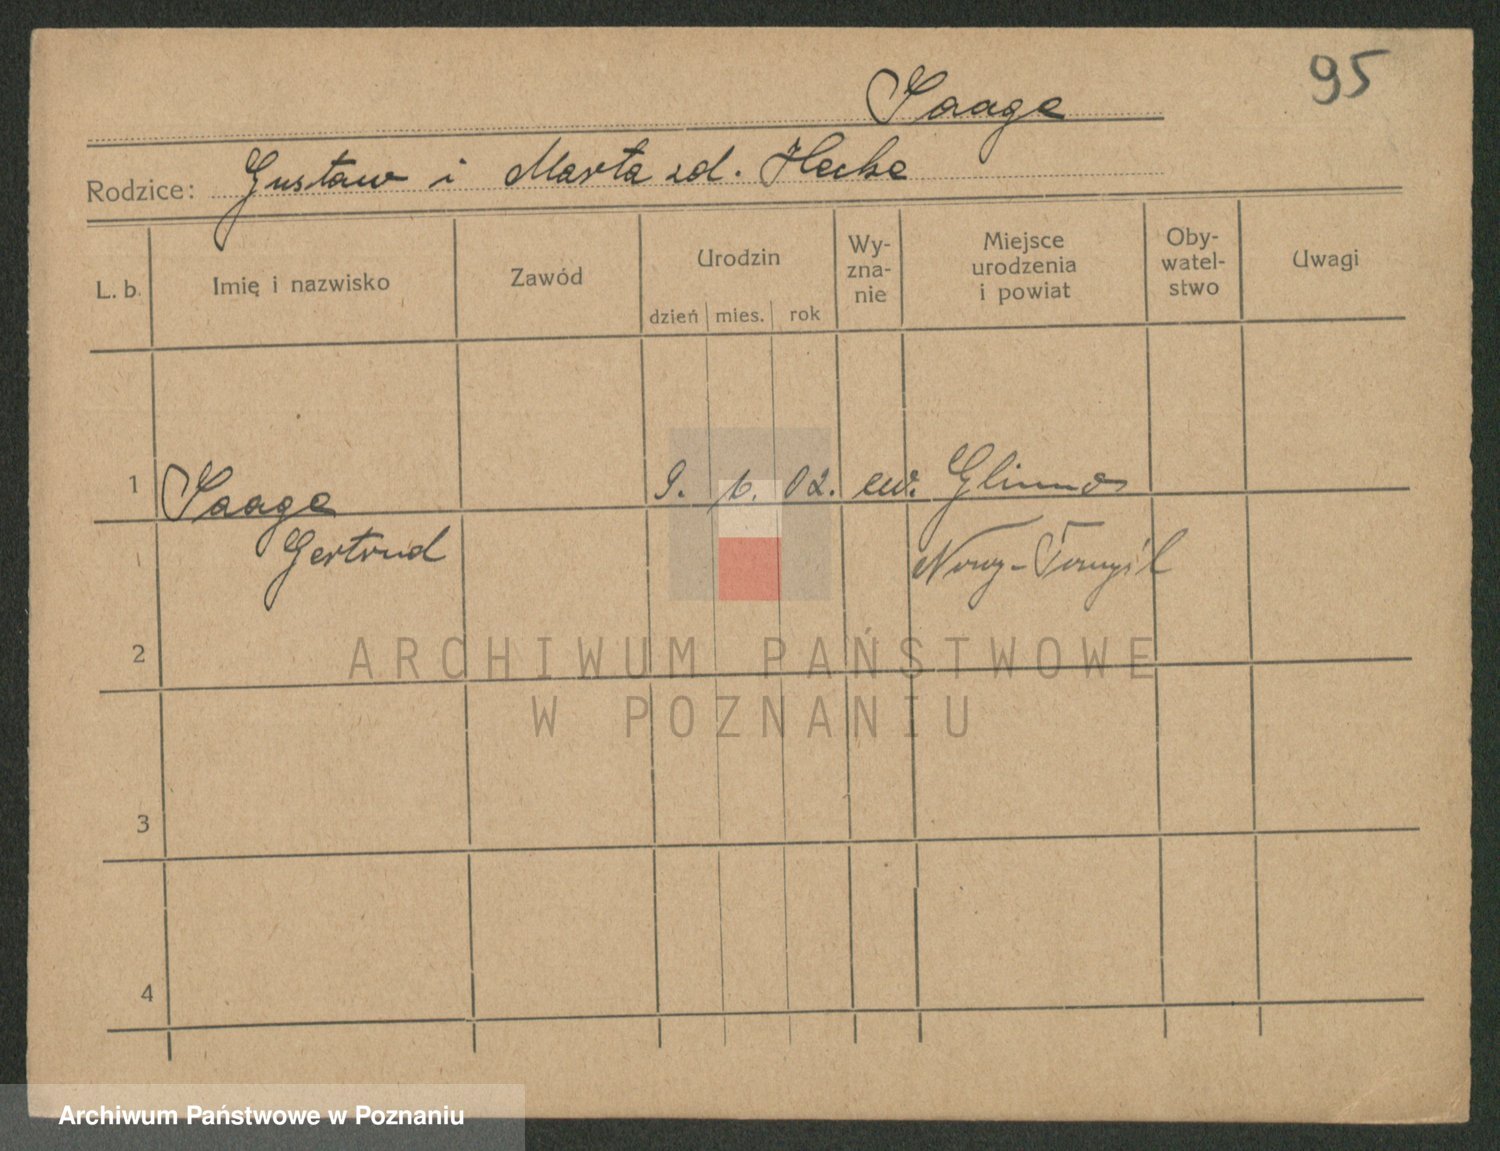 95
Saage
Rodzice: Gustaw i Marta zd. Hecke
L. b. Imię i nazwisko Zawód Urodzin Wy-
zna-
nie Miejsce
urodzenia
i powiat Oby-
watel-
stwo Uwagi
dzień mies. rok
1 Saage 9. 6. 02. ew. Glinno
Gertrud Nowy-Tomyśl
2
3
4
ARCHIWUM PAŃSTWOWE
W POZNANIU
Archiwum Państwowe w Poznaniu